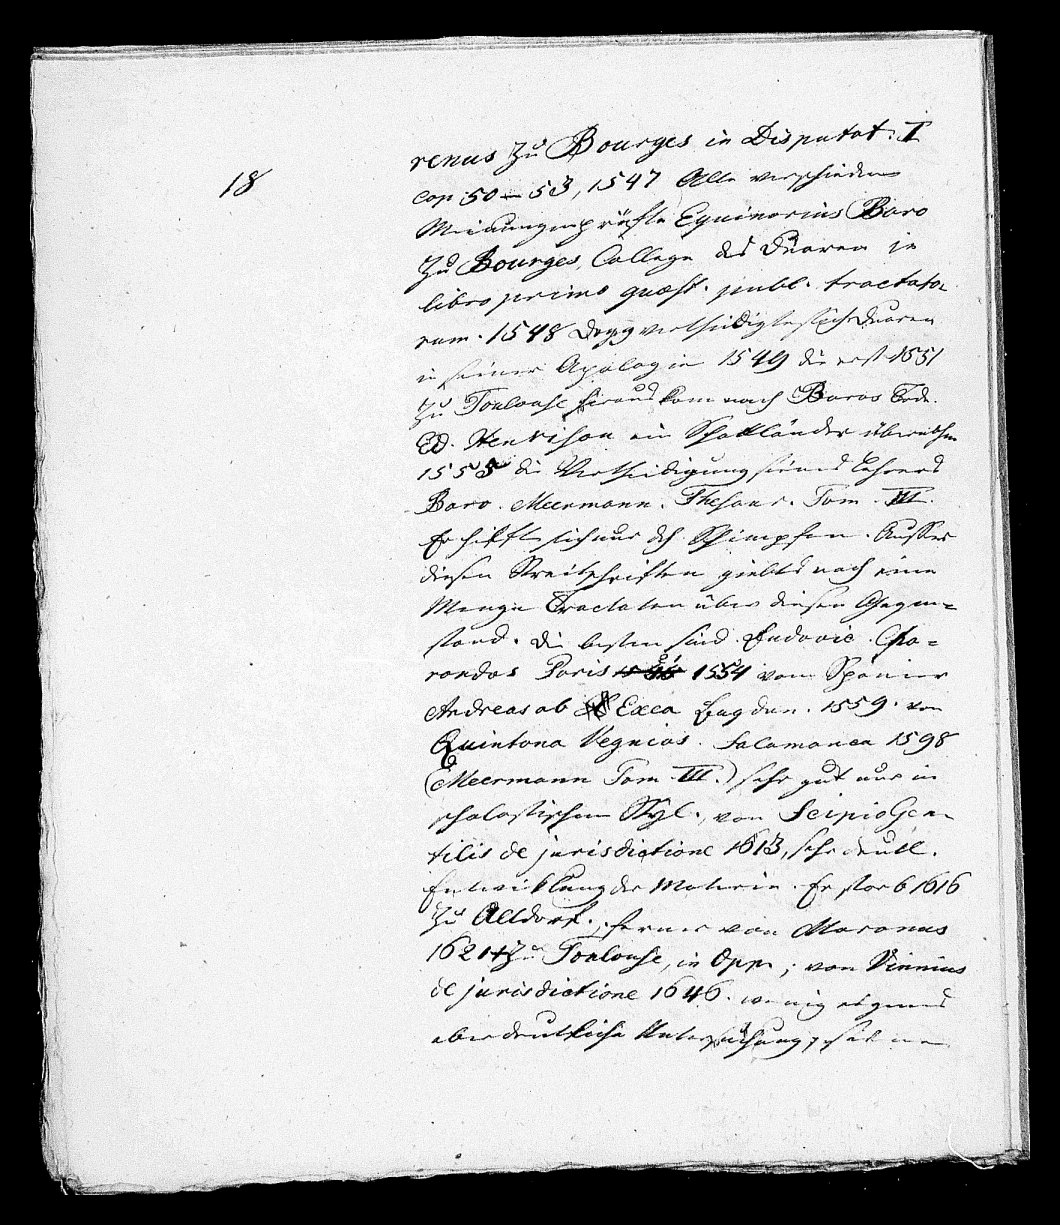 18
renus zu Bourges in Disputat. I
cap 50 – 53, 1547 Alle verschiedene
Meinungen prüfte Eguinarius Baro
zu Bourges, College des Duaren in
libro primo quæst. publ. tractata-
rum. 1548 vertheidigte sich Duaren
in seiner Apologie 1549 die erst 1551
zu Toulouse heraus kam nach Baros Tode.
Ed. Henrison ein Schottländer übernahm
1555 die Vertheidigung seines Lehrers
Baro. Meermann. Thesaur. Tom. III.
Er hilft sich nur dch Schimpfen. Ausser
diesen Streitschriften giebts noch eine
Menge Tractaten über diesen Gegen=
stand. Die besten sind Ludovic. Cha=
rondas Paris 1554 vom Spanier
Andreas ab Exea Lugdun. 1559. von
Quintana Vegnias. Salamanca 1598
(Meermann Tom. III.) sehr gut nur in
scholastischem Styl., von Scipio Gen-
tilis de jurisdictione 1613, sehr deutl.
Entwicklung der Materie. Er starb 1616
zu Altdorf., ferner von Maranus
1621 † zu Toulouse, in Opp.; von Vinnius
de jurisdictione 1646. wenig eigenes
aber deutliche Untersuchung,